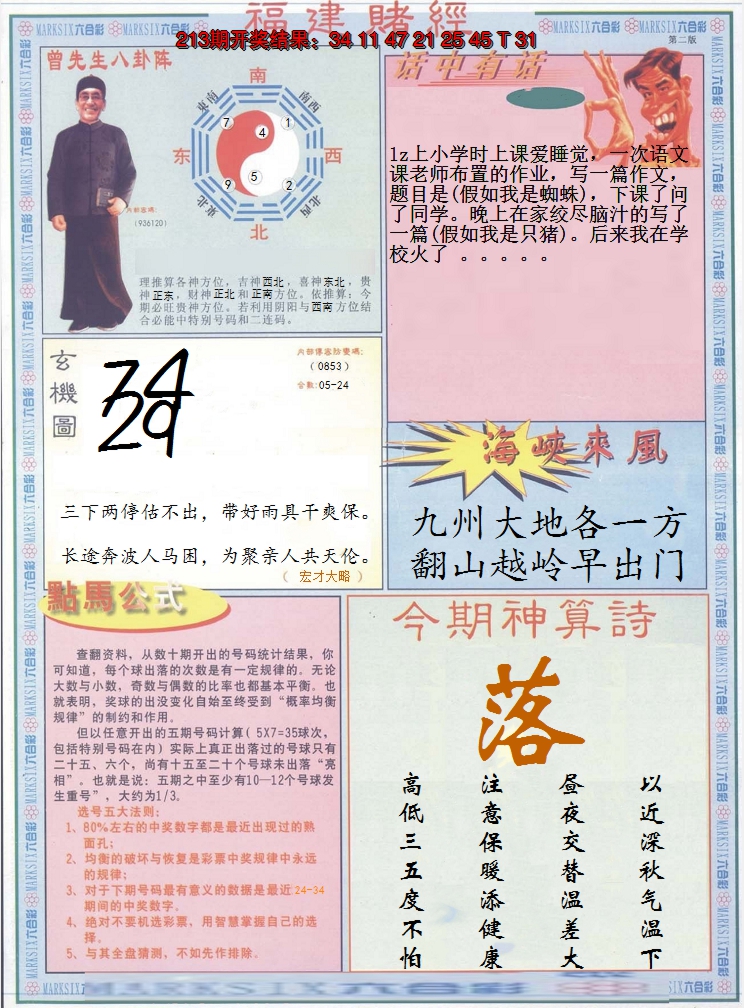 福建賭經
213期开奖结果：34 11 47 21 25 45 T 31
第二版
MARKSIX六合彩
曾先生八卦阵
南
東南
南西
东
西
東北
北西
北
7
4
1
9
5
2
内部密碼：
（936120）
理推算各神方位，吉神西北，喜神东北，贵
神正东，财神正北和正南方位。依推算：今
期必旺贵神方位。若利用阴阳与西南方位结
合必能中特别号码和二连码。
话中有话
lz上小学时上课爱睡觉，一次语文
课老师布置的作业，写一篇作文，
题目是(假如我是蜘蛛)，下课了问
了同学。晚上在家绞尽脑汁的写了
一篇(假如我是只猪)。后来我在学
校火了 。。。。。
玄機圖
34
29
（0853）
合数:05-24
三下两停估不出，带好雨具干爽保。
长途奔波人马困，为聚亲人共天伦。
（ 宏才大略 ）
海峡來風
九州大地各一方
翻山越岭早出门
點馬公式
查翻资料，从数十期开出的号码统计结果，你
可知道，每个球出落的次数是有一定规律的。无论
大数与小数，奇数与偶数的比率也都基本平衡。也
就表明，奖球的出没变化自始至终受到“概率均衡
规律”的制约和作用。
但以任意开出的五期号码计算( 5X7=35球次，
包括特别号码在内) 实际上真正出落过的号球只有
二十五、六个，尚有十五至二十个号球未出落“亮
相”。也就是说：五期之中至少有10—12个号球发
生重号”，大约为1/3。
选号五大法则：
1、80%左右的中奖数字都是最近出现过的熟
面孔；
2、均衡的破坏与恢复是彩票中奖规律中永远
的规律；
3、对于下期号码最有意义的数据是最近24-34
期间的中奖数字。
4、绝对不要机选彩票，用智慧掌握自己的选
择。
5、与其全盘猜测，不如先作排除。
今期神算詩
落
以近深秋气温下
昼夜交替温差大
注意保暖添健康
高低三五度不怕